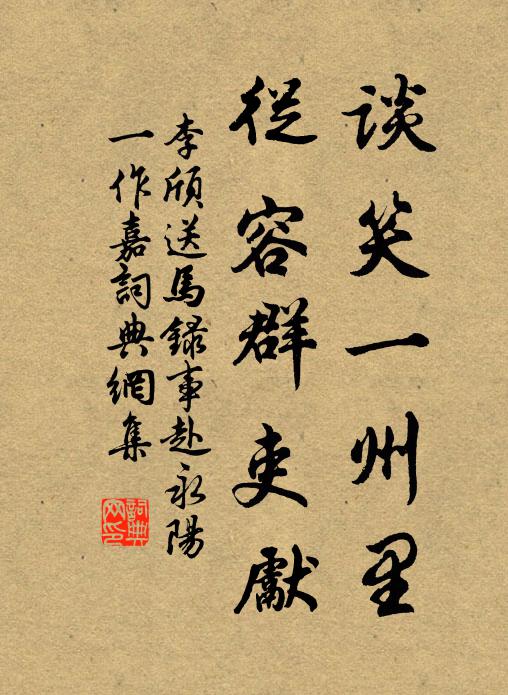 谈笑一州里
從容群吏獻
李頎送馬錄事赴永陽
一作嘉詞典網集
詞典網印